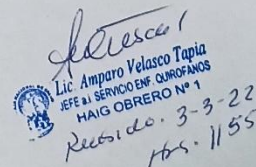 Lic. Amparo Velasco Tapia
JEFE a.i SERVICIO ENF. QUIROFANOS
HAIG OBRERO Nº 1
Recibido. 3-3-22
Hrs. 1155